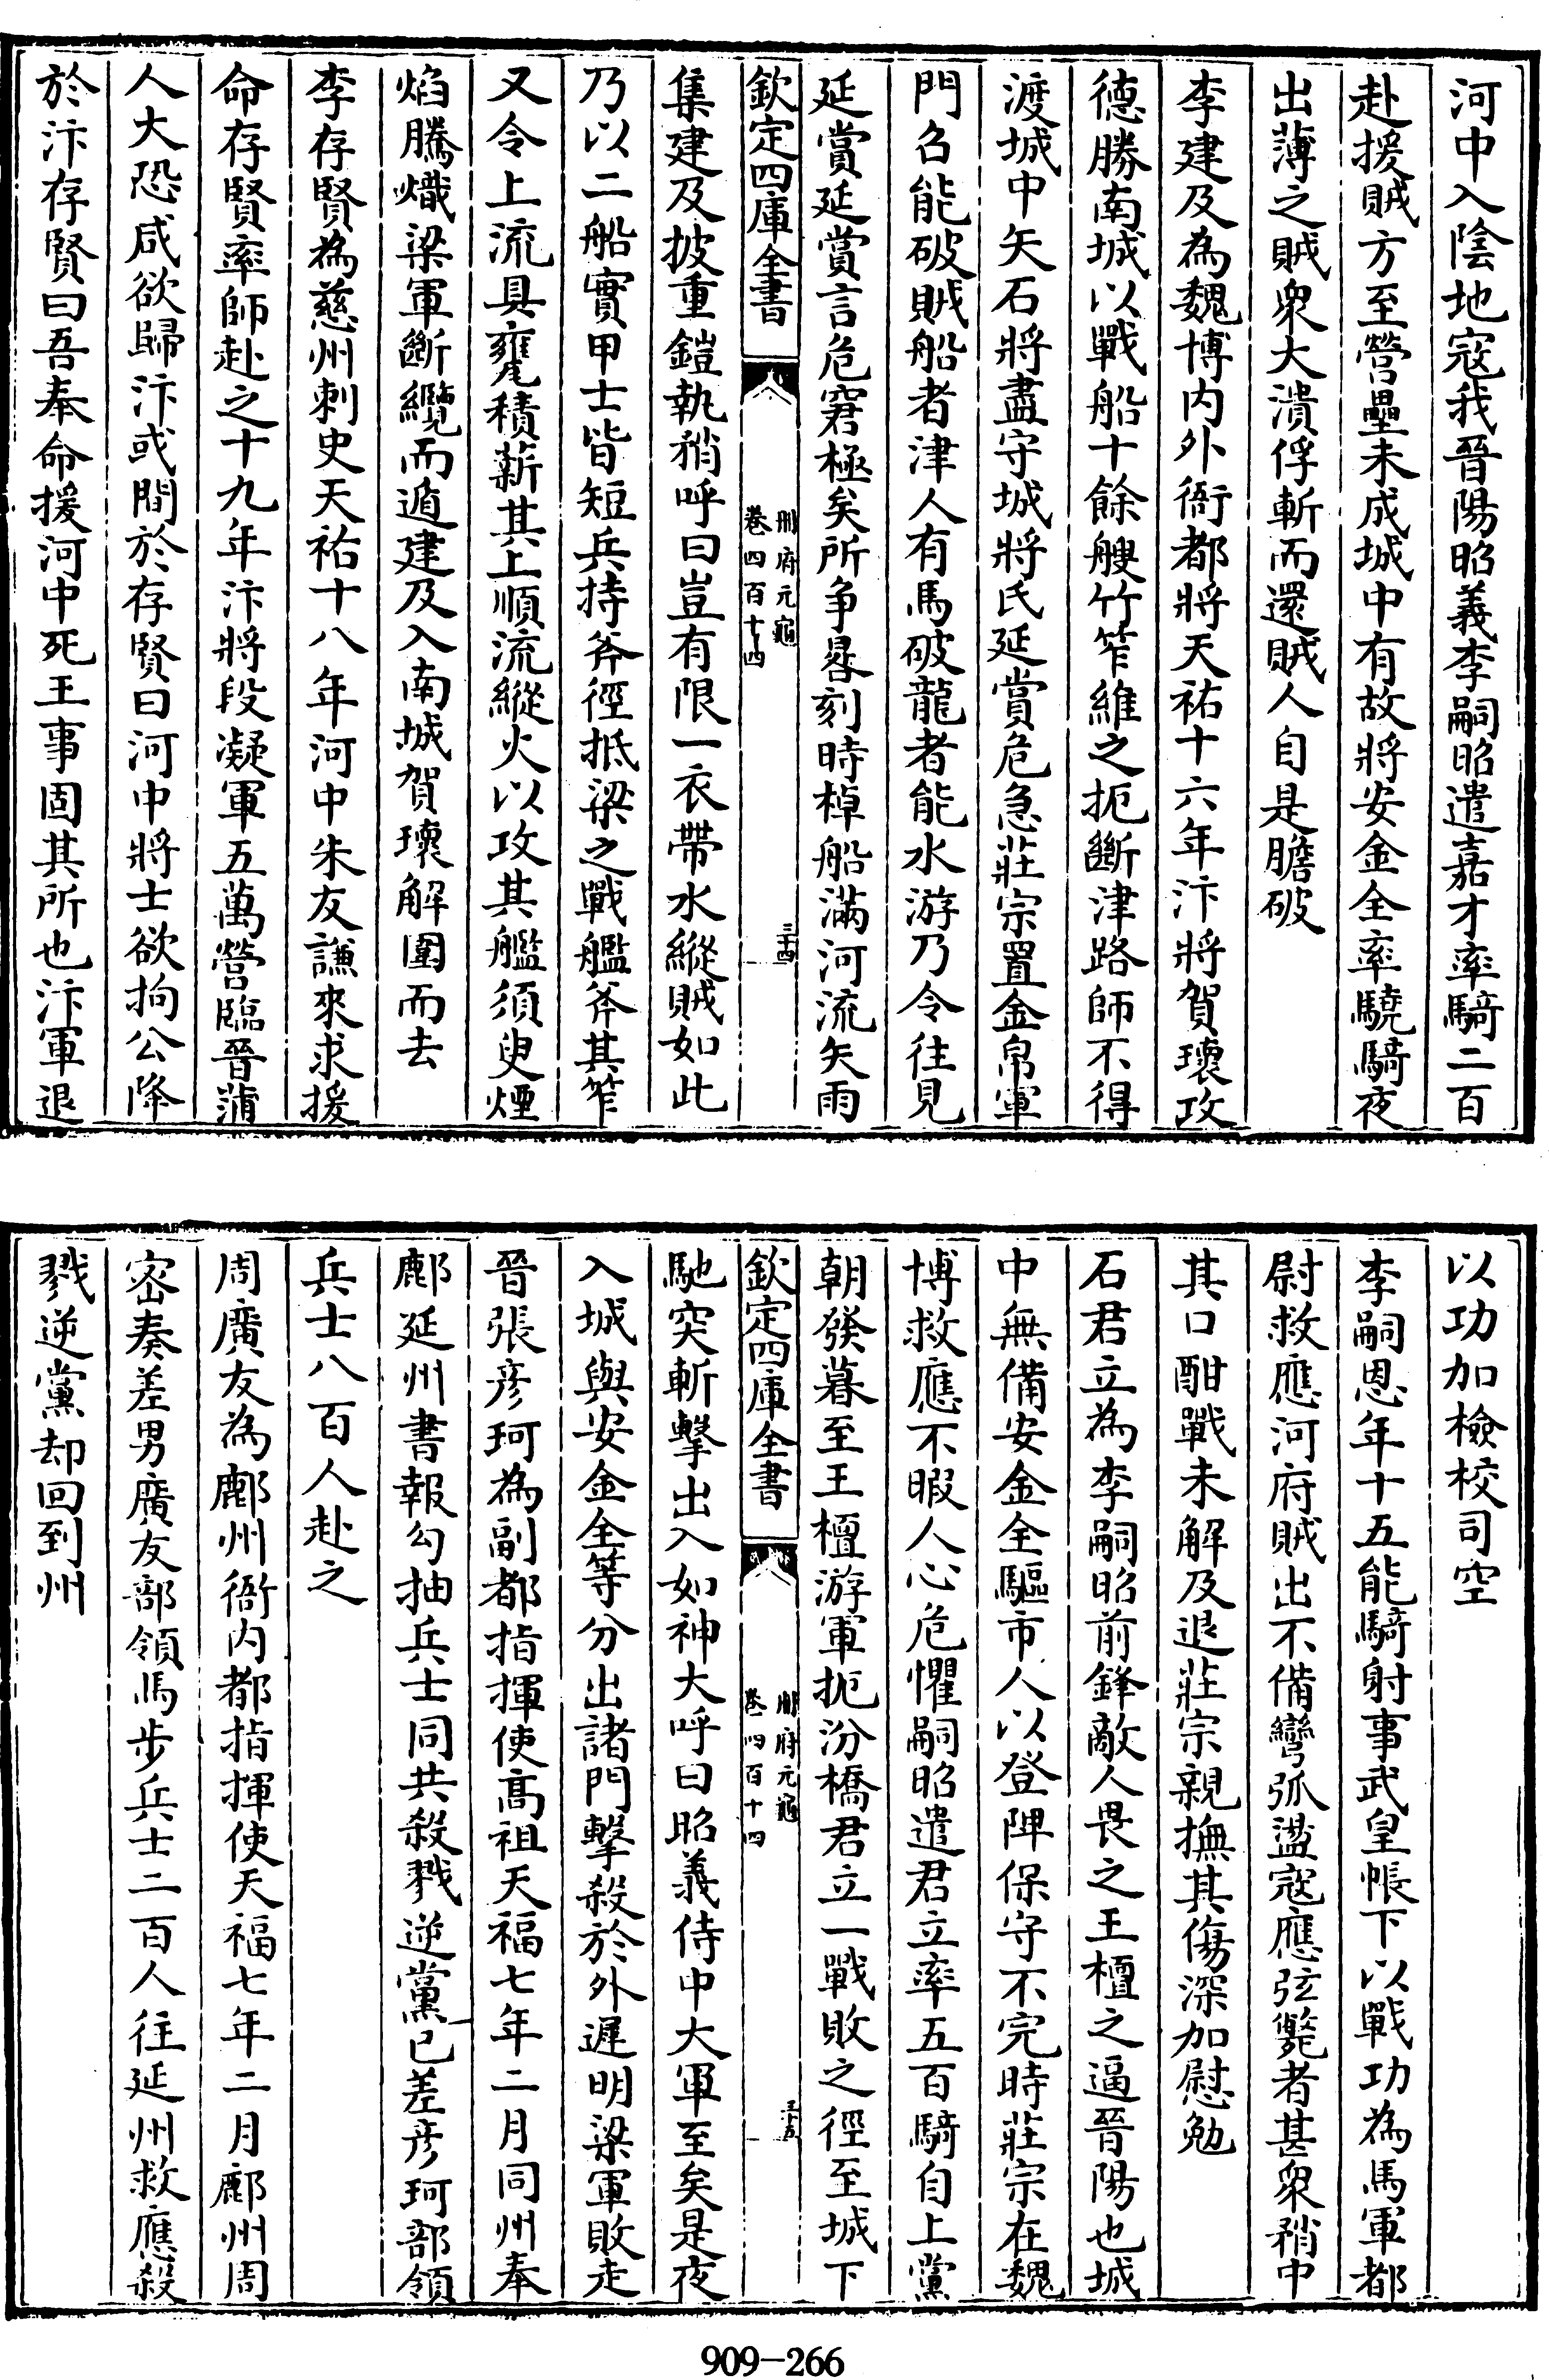 河中入陰地寇我晉陽昭義李嗣昭遣嘉才率騎二百
赴援賊方至營壘未成城中有故將安金全率驍騎夜
出薄之賊衆大潰俘斬而還賊人自是膽破
李建及為魏博内外衙都將天祐十六年汴將賀瓌攻
德勝南城以戰船十餘艘竹笮維之扼斷津路師不得
渡城中矢石將盡守城將氏延賞危急莊宗置金帛軍
門名能破賊船者津人有馬破龍者能水游乃令往見
延賞延賞言危窘極矣所争晷刻時棹船滿河流矢雨
欽定四庫全書
冊府元龜
卷四百十四
三十四
集建及披重鎧執矟呼曰豈有限一衣帶水縱賊如此
乃以二船實甲士皆短兵持斧徑抵梁之戰艦斧其笮
又令上流具甕積薪其上順流縱火以攻其艦須臾煙
焰騰熾梁軍斷纜而遁建及入南城賀瓌解圍而去
李存賢為慈州刺史天祐十八年河中朱友謙來求援
命存賢率師赴之十九年汴將段凝軍五萬營臨晉蒲
人大恐咸欲歸汴或間於存賢曰河中將士欲拘公降
於汴存賢曰吾奉命援河中死王事固其所也汴軍退
以功加檢校司空
李嗣恩年十五能騎射事武皇帳下以戰功為馬軍都
尉救應河府賊出不備彎弧盪寇應弦斃者甚衆矟中
其口酣戰未解及退莊宗親撫其傷深加慰勉
石君立為李嗣昭前鋒敵人畏之王檀之逼晉陽也城
中無備安金全驅市人以登陴保守不完時莊宗在魏
博救應不暇人心危懼嗣昭遣君立率五百騎自上黨
朝發暮至王檀游軍扼汾橋君立一戰敗之徑至城下
欽定四庫全書
冊府元龜
卷四百十四
三十五
馳突斬擊出入如神大呼曰昭義侍中大軍至矣是夜
入城與安金全等分出諸門擊殺於外遲明梁軍敗走
晉張彦珂為副都指揮使高祖天福七年二月同州奉
鄜延州書報勾抽兵士同共殺戮逆黨已差彦珂部領
兵士八百人赴之
周廣友為鄜州衙内都指揮使天福七年二月鄜州周
密奏差男廣友部領馬步兵士二百人往延州救應殺
戮逆黨却回到州
909-266